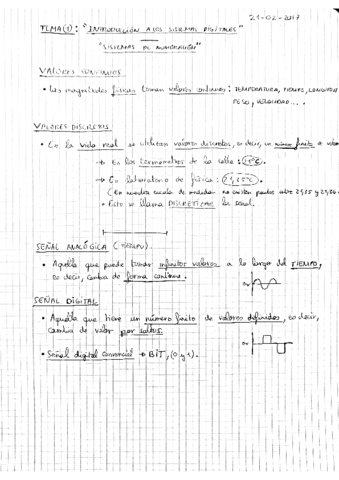 21-02-2017
TEMA (1): "INTRODUCCIÓN A LOS SISTEMAS DIGITALES"
"SISTEMAS DE NUMERACIÓN"
VALORES CONTINUOS
• Las magnitudes físicas toman valores continuos: TEMPERATURA, TIEMPO, LONGITUD
PESO, VELOCIDAD....
VALORES DISCRETOS
• En la vida real se utilizan valores discretos, es decir, un número finito de valores
→ En los termómetros de la calle:
→ En laboratorio de física:
(En nuestra escala de medidas no existen puntos entre
• Esto se llama DISCRETIZAR la señal.
SEÑAL ANALÓGICA (TIEMPO).
• Aquella que puede tomar infinitos valores a lo largo del TIEMPO,
es decir, cambia de forma continua.
0V
SEÑAL DIGITAL
• Aquella que tiene un número finito de valores definidos, es decir,
cambia de valor por saltos
0V
• Señal digital comercial → BIT, (0 y 1).